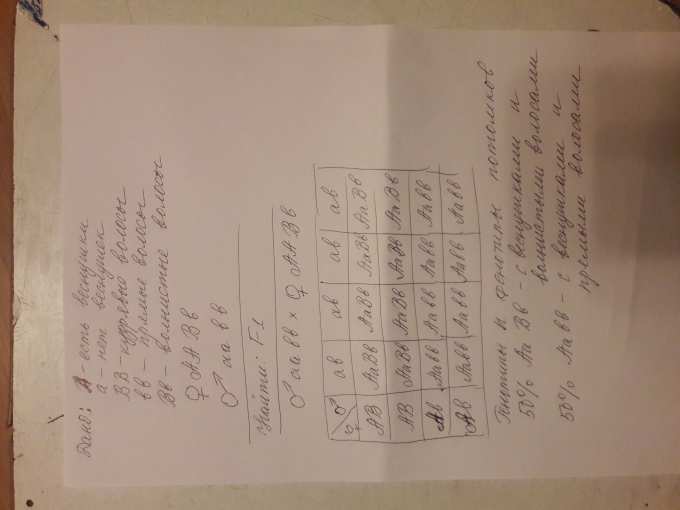 Дано: А - есть веснушки
а - нет веснушек
ВВ - кудрявые волосы
вв - прямые волосы
Вв - волнистые волосы
♀ ААВв
♂ аавв
Найти: F1
♂ аавв × ♀ ААВв
♀ ♂ ав ав ав ав
АВ АаВв АаВв АаВв АаВв
АВ АаВв АаВв АаВв АаВв
Ав Аавв Аавв Аавв Аавв
Ав Аавв Аавв Аавв Аавв
и фенотипы потомков
50% АаВв - с веснушками и
волнистыми волосами
50% Аавв - с веснушками и
прямыми волосами